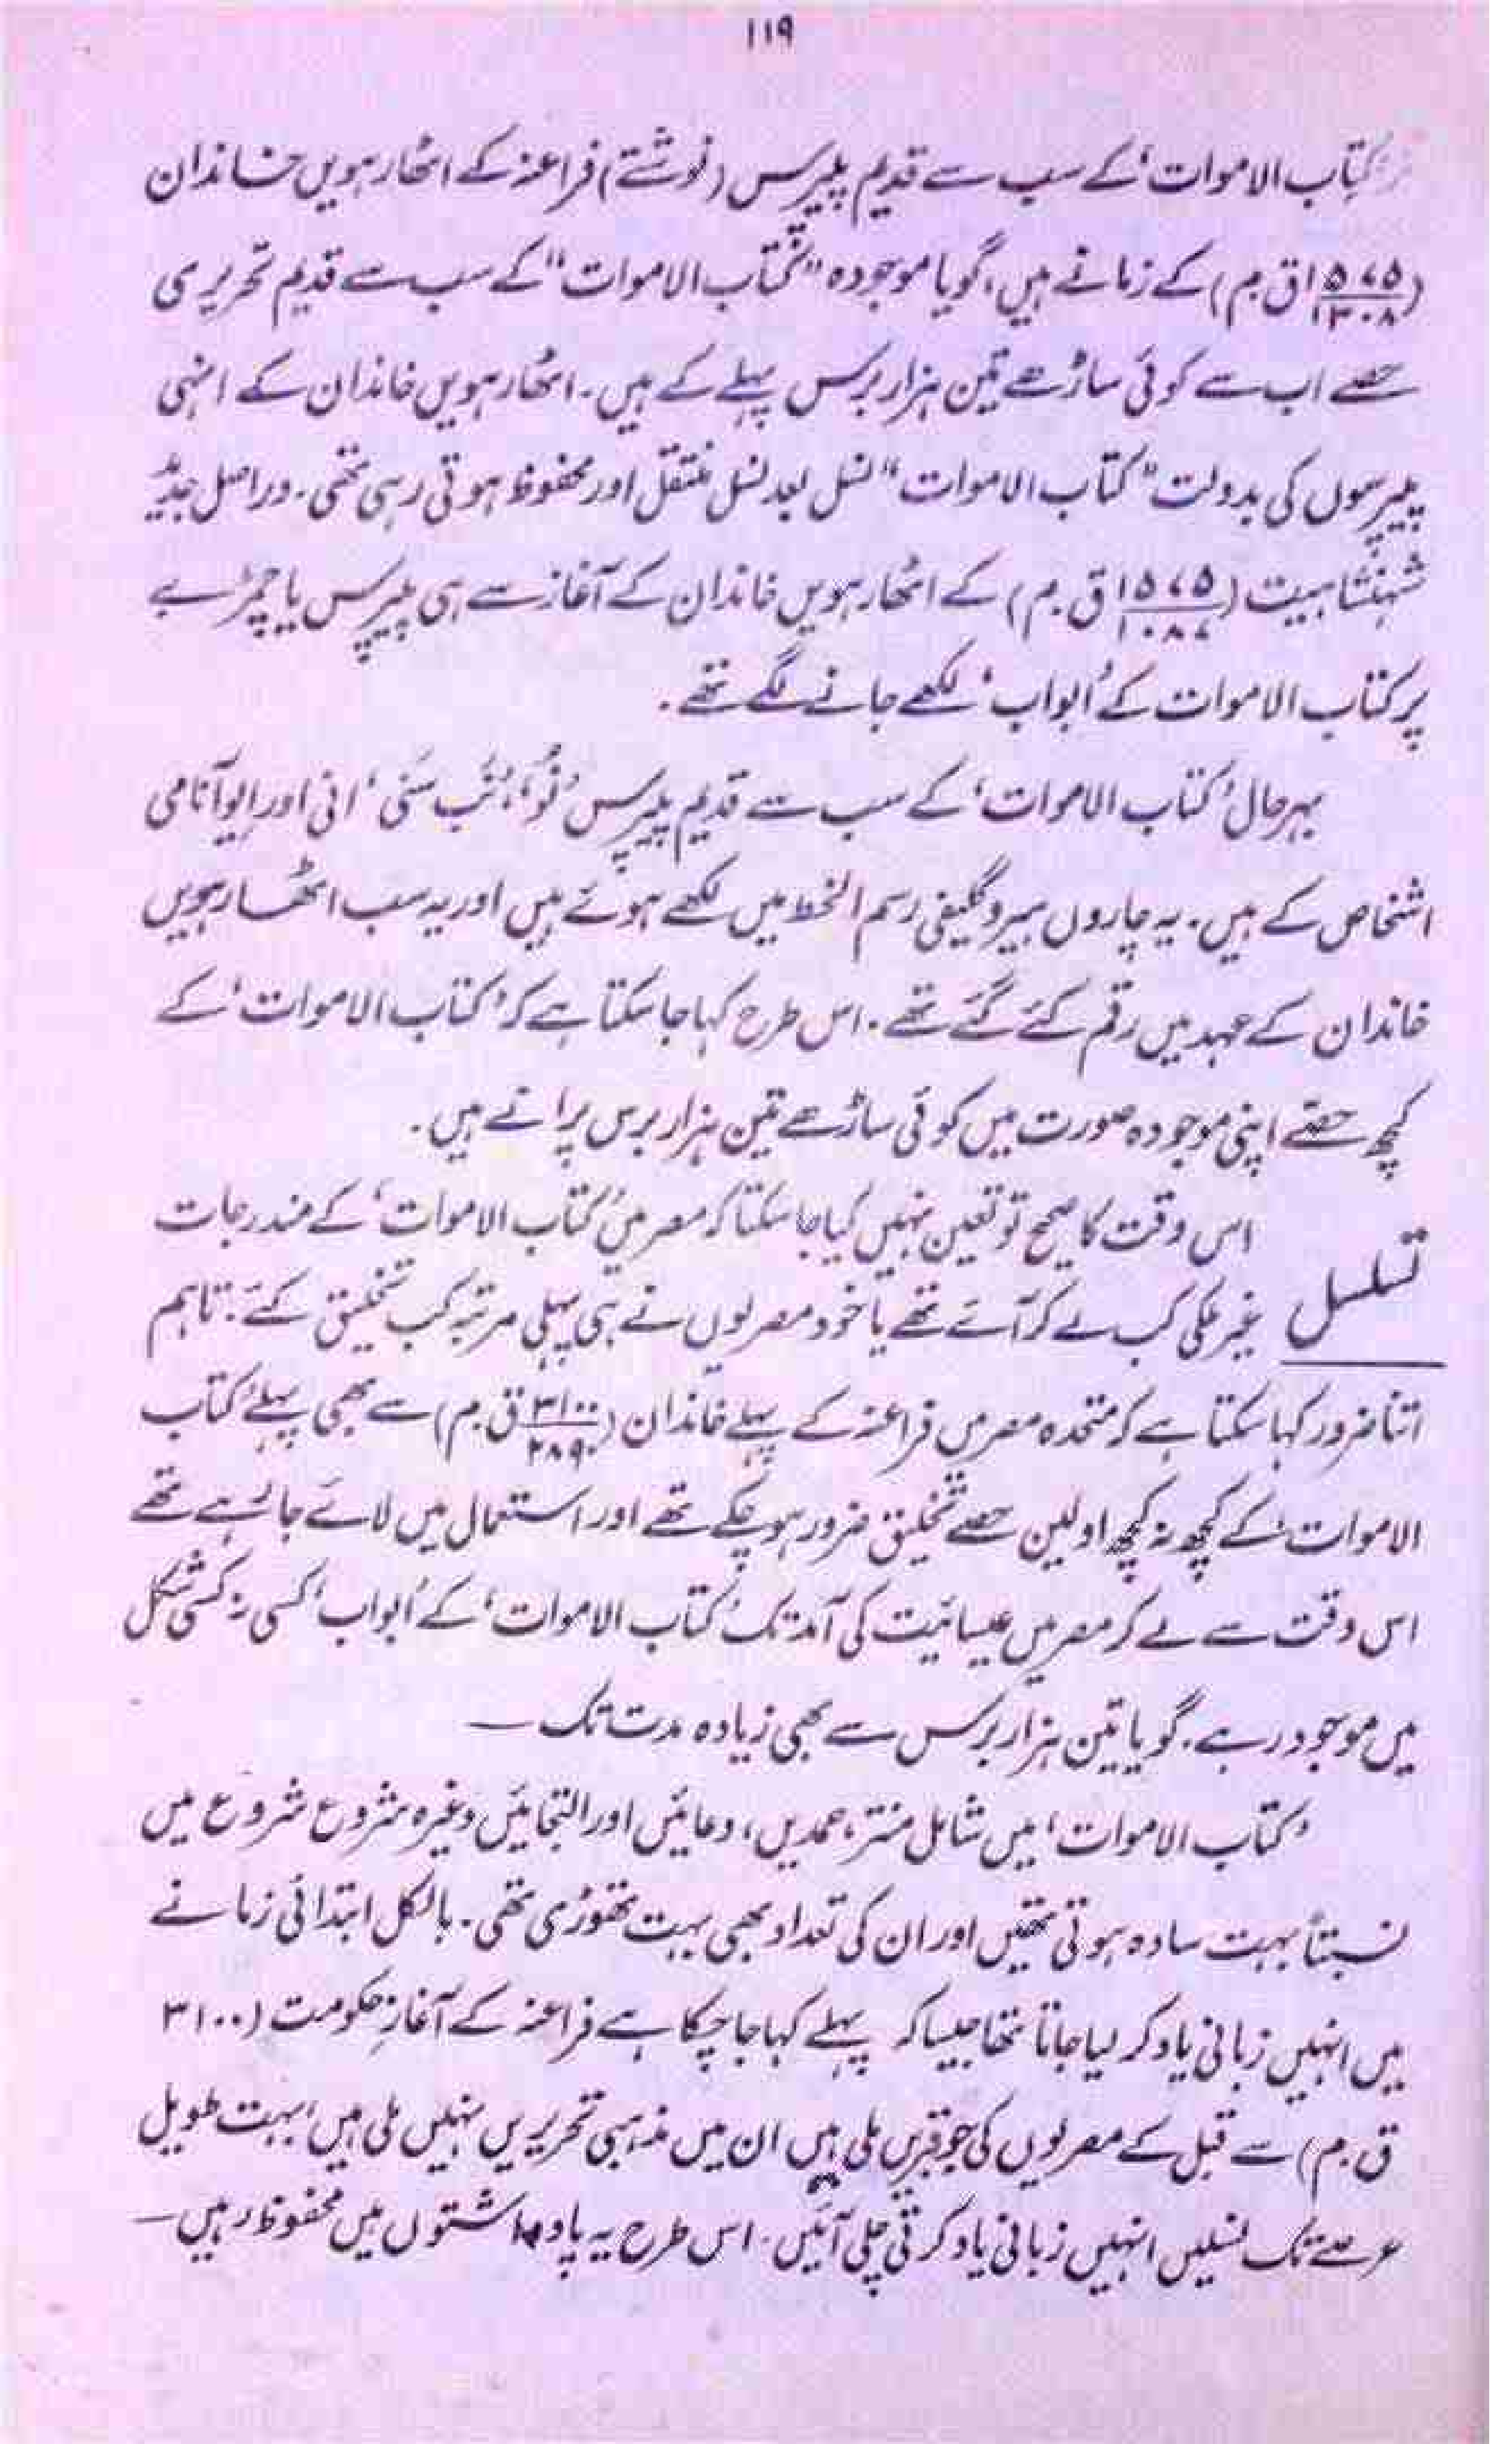 ۱۱۹
کتاب الاموات‘ کے سب سے قدیم پیپرس (نوشتے) فراعنہ کے اٹھارہویں خاندان
(۱۵۷۵/۱۳۰۸ ق.م) کے زمانے ہیں، گویا موجودہ "کتاب الاموات" کے سب سے قدیم تحریری
حصے اب سے کوئی ساڑھے تین ہزار برس پہلے کے ہیں۔ اٹھارہویں خاندان کے انہی
پیپرسوں کی بدولت "کتاب الاموات" نسل بعد نسل منتقل اور محفوظ ہوتی رہی تھی۔ دراصل جدید
شہنشاہیت (۱۵۷۵/۱۰۸۷ ق.م) کے اٹھارہویں خاندان کے آغاز سے ہی پیپرس یا چمڑے
پر کتاب الاموات کے ’ابواب‘ لکھے جانے لگے تھے۔
بہرحال ’کتاب الاموات‘ کے سب سے قدیم پیپرس ’نُو‘، ’نَب سَنی‘ انی اور اِیوآ نامی
اشخاص کے ہیں۔ یہ چاروں ہیروگلیفی رسم الخط میں لکھے ہوئے ہیں اور یہ سب اٹھارہویں
خاندان کے عہد میں رقم کئے گئے تھے۔ اس طرح کہا جا سکتا ہے کہ ’کتاب الاموات‘ کے
کچھ حصّے اپنی موجودہ صورت میں کوئی ساڑھے تین ہزار برس پرانے ہیں۔
تسلسل
اس وقت کا صحیح تو تعین نہیں کیا جا سکتا کہ مصر میں ’کتاب الاموات‘ کے مندرجات
غیر ملکی کب لے کر آئے تھے یا خود مصریوں نے ہی پہلی مرتبہ کب تخلیق کئے؛ تاہم
اتنا ضرور کہا سکتا ہے کہ متحدہ مصر میں فراعنہ کے پہلے خاندان (۳۱۰۰/۲۸۹۰ ق.م) سے بھی پہلے ’کتاب
الاموات‘ کے کچھ نہ کچھ اولین حصے تخلیق ضرور ہو چکے تھے اور استعمال میں لائے جا رہے تھے
اس وقت سے لے کر مصر میں عیسائیت کی آمد تک ’کتاب الاموات‘ کے ’ابواب‘ کسی نہ کسی شکل
میں موجود رہے۔ گویا تین ہزار برس سے بھی زیادہ مدت تک —
’کتاب الاموات‘ میں شامل منتر، حمدیں، دعائیں اور التجائیں وغیرہ شروع شروع میں
نسبتاً بہت سادہ ہوتی تھیں اور ان کی تعداد بھی بہت تھوڑی تھی۔ بالکل ابتدائی زمانے
میں انہیں زبانی یاد کر لیا جاتا تھا جیسا کہ پہلے کہا جا چکا ہے فراعنہ کے آغازِ حکومت (۳۱۰۰
ق.م) سے قبل کے مصریوں کی جو قبریں ملی ہیں ان میں مذہبی تحریریں نہیں ملی ہیں، بہت طویل
عرصے تک نسلیں انہیں زبانی یاد کرتی چلی آئیں۔ اس طرح یہ یادداشتوں میں محفوظ رہیں —